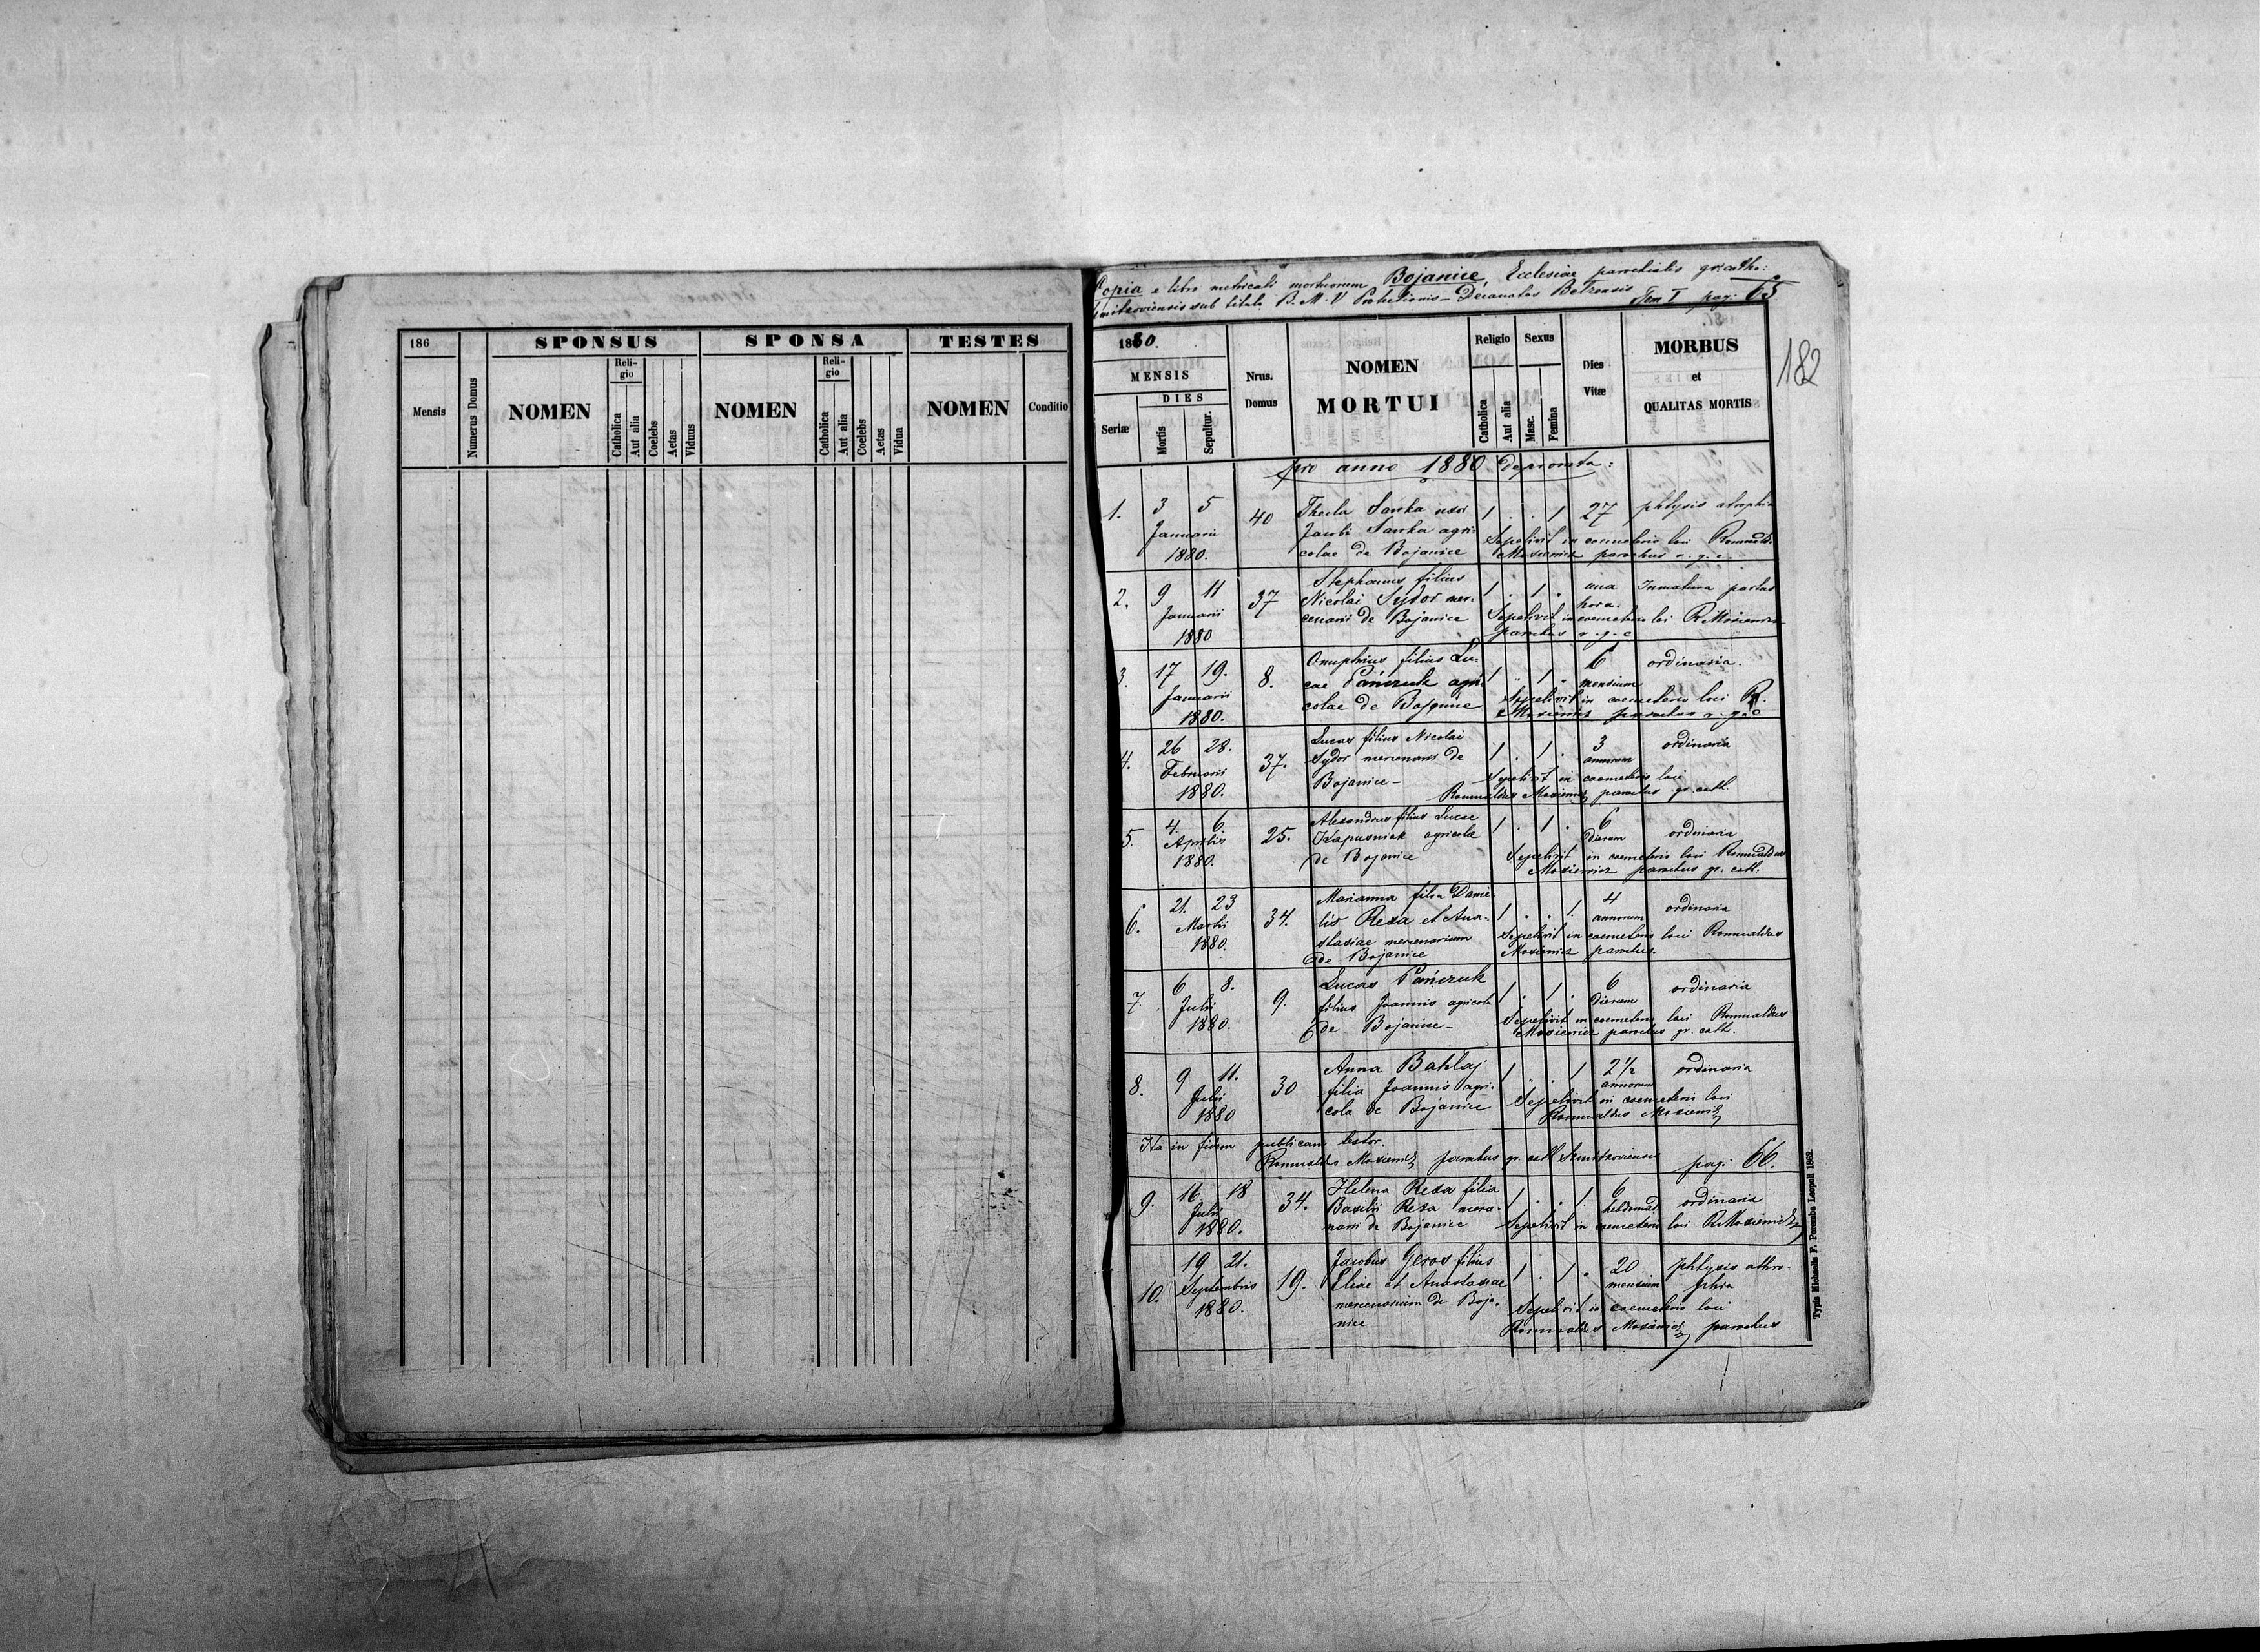 186
Mensis
Numerus Domus
SPONSUS
NOMEN
Reli-
gio
Catholica
Aut alia
Coelebs
Aetas
Viduus
SPONSA
NOMEN
Reli-
gio
Catholica
Aut alia
Coelebs
Aetas
Vidua
TESTES
NOMEN
Conditio
Copia e libro metricali mortuorum Bojanice Ecclesiae parochialis gr: cath:
sub titulo B. M. V Protectionis - Decanatus Belzensis Tom I pag: 65
182
1880.
MENSIS
Seriæ
DIES
Mortis
Sepultur.
Nrus.
Domus
NOMEN
MORTUI
Religio
Catholica
Aut alia
Sexus
Masc.
Femina
Dies
Vitæ
MORBUS
et
QUALITAS MORTIS
pro anno 1880 depromta:
1. 3 5 40 Thecla Sanka 1 . . 1 27 phtysis atrophia
Januarii Jacobi Sanka agri
1880. colae de Bojanice
Sepelivit in coemeterio loci
parochus r. g. c.
2. 9 11 37 Stephanus filius 1 . 1 . una Inmatura partus
Januarii Nicolai Sydor mer- hora.
1880 cenarii de Bojanice Sepelivit in coemeterio loci
parochus r. g. c
3. 17 19. 8. Onuphrius filius Lu- 1 . 1 . 6 ordinaria.
Januarii cae Pańczuk agri mensium
1880. colae de Bojanice Sepelivit in coemeterio loci R.
parochus r. g. c
4. 26 28. 37. Lucas filius Nicolai 1 . 1 . 3 ordinaria
Februarii Sydor mercenarii de annorum
1880. Bojanice - Sepelivit in coemeterio loci
Romualdus parochus gr. cath.
5. 4. 6. 25. Alexandrus filius Lucae 1 . 1 . 6 ordinaria
Aprilis Kapusniak agricola dierum
1880. de Bojanice Sepelivit in coemeterio loci Romualdus
parochus gr. cath.
6. 21. 23 34. Marianna filia Danie- 1 . . 1. 4 ordinaria
Martii lis Rexa et Ana- annorum
1880. stasiae mercenariorum Sepelivit in coemeterio loci Romualdus
de Bojanice parochus.
7. 6 8. 9. Lucas Pańczuk 1 . 1 . 6 ordinaria
Julii filius Joannis agricola dierum
1880. de Bojanice - Sepelivit in coemeterio loci Romualdus
parochus gr. cath.
8. 9 11. 30 Anna Bahlaj 1 . . 1 2 1/2 ordinaria
Julii filia Joannis agri- annorum
1880 cola de Bojanice Sepelivit in coemeterio loci
Romualdus
Ita in fidem publicam testor.
parochus gr. cath pag: 66.
9. 16 18 34. Helena Rexa filia 1 . . 1. 6 ordinaria
Julii Basilii Rexa merce- hebdomad
1880. narii de Bojanice Sepelivit in coemeterio loci
10. 19 21. 19. Jacobus filius 1 . 1 . 20 phtysis athro-
Septembris Eliae et Anastasiae mensium phia
1880. mercenariorum de Boja- Sepelivit in coemeterio loci
nice Romualdus parochus
Typis Michaelis F. Poremba Leopoli 1862.